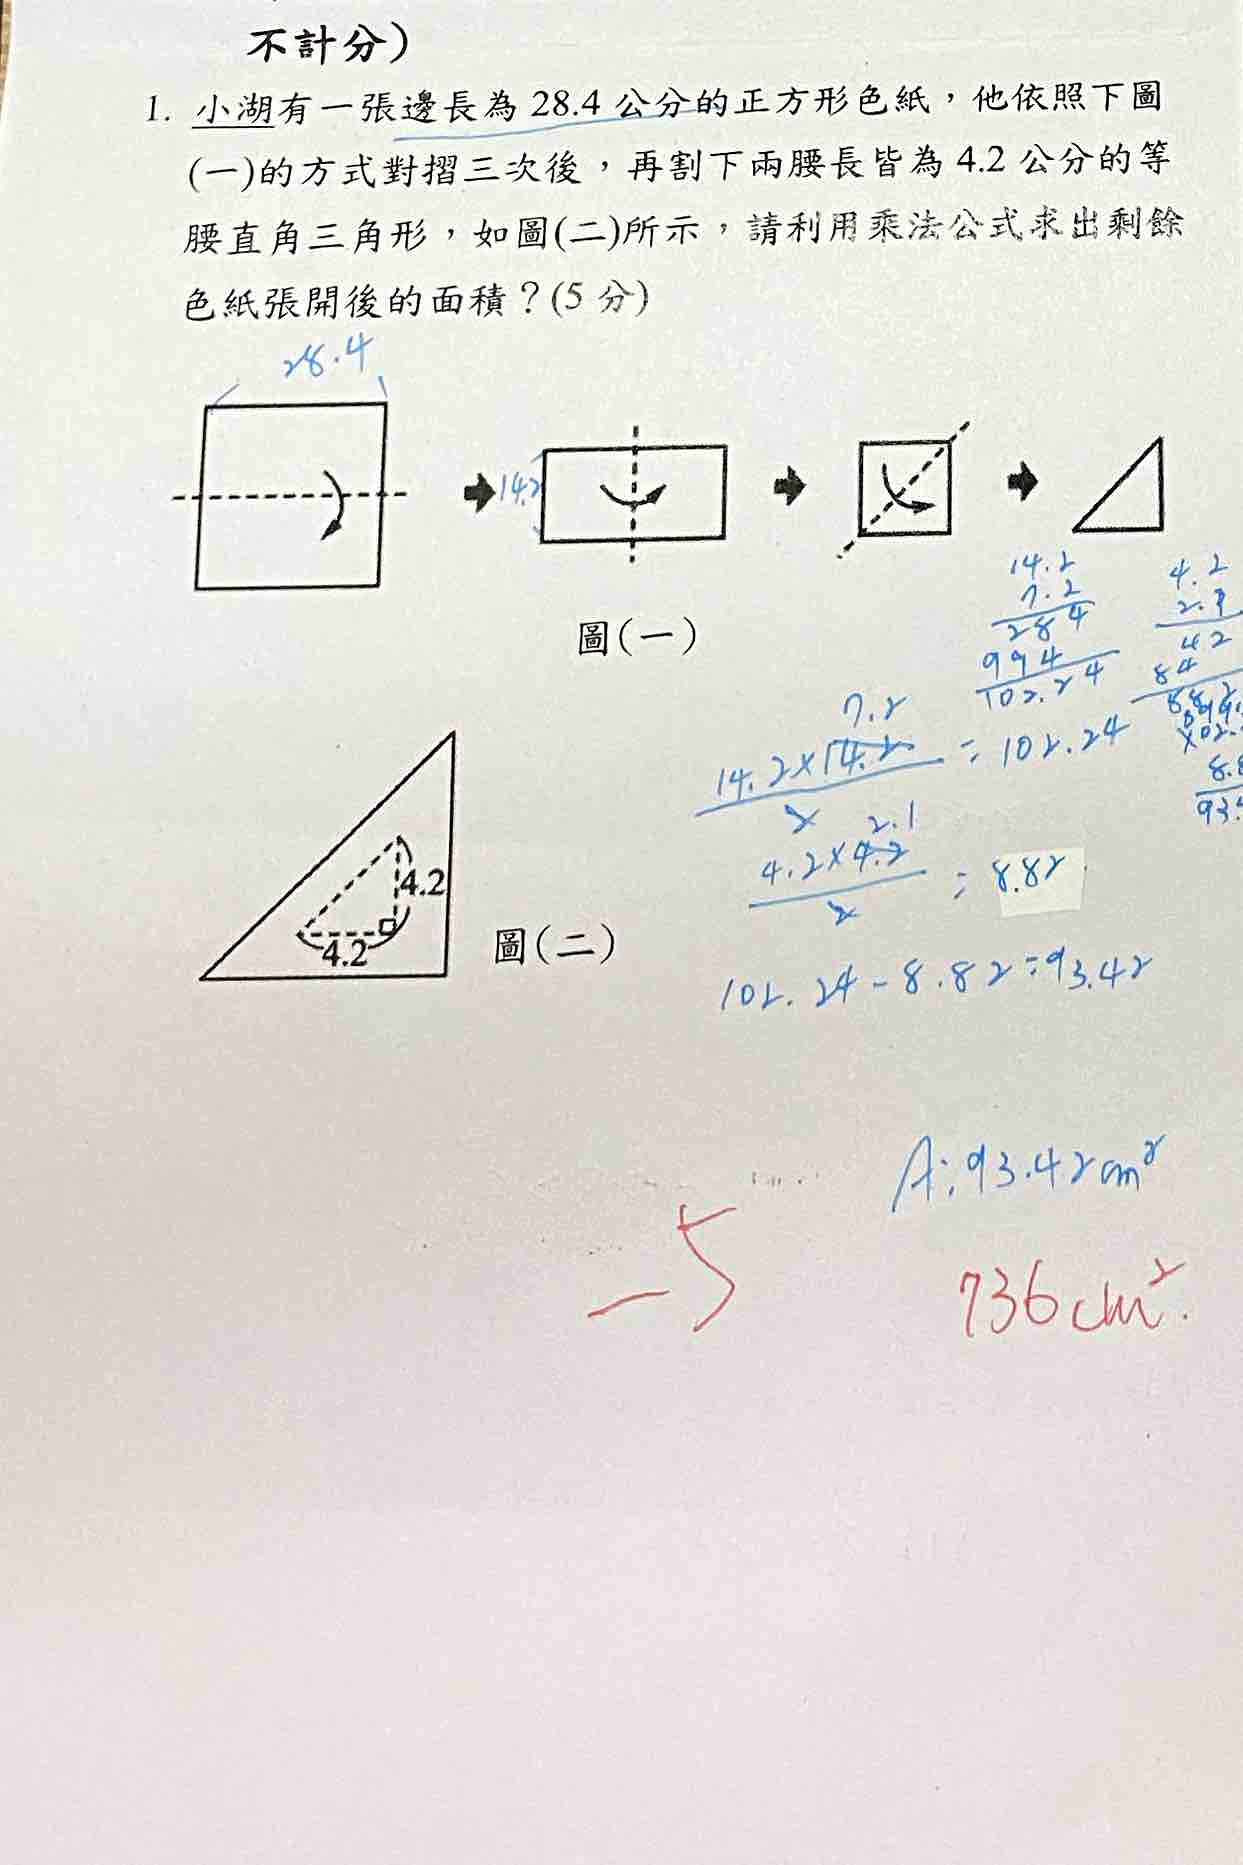 不計分)
1. 小湖有一張邊長為 28.4 公分的正方形色紙，他依照下圖
(一)的方式對摺三次後，再割下兩腰長皆為 4.2 公分的等
腰直角三角形，如圖(二)所示，請利用乘法公式求出剩餘
色紙張開後的面積？(5 分)
28.4
14.2
圖(一)
14.2
7.2
284
994
102.24
4.2
42
84
7.2
14.2×14.2
2
=102.24
2.1
4.2×4.2
2
=8.82
4.2
4.2
圖(二)
102.24-8.82=93.42
A:93.42cm²
-5
736cm².